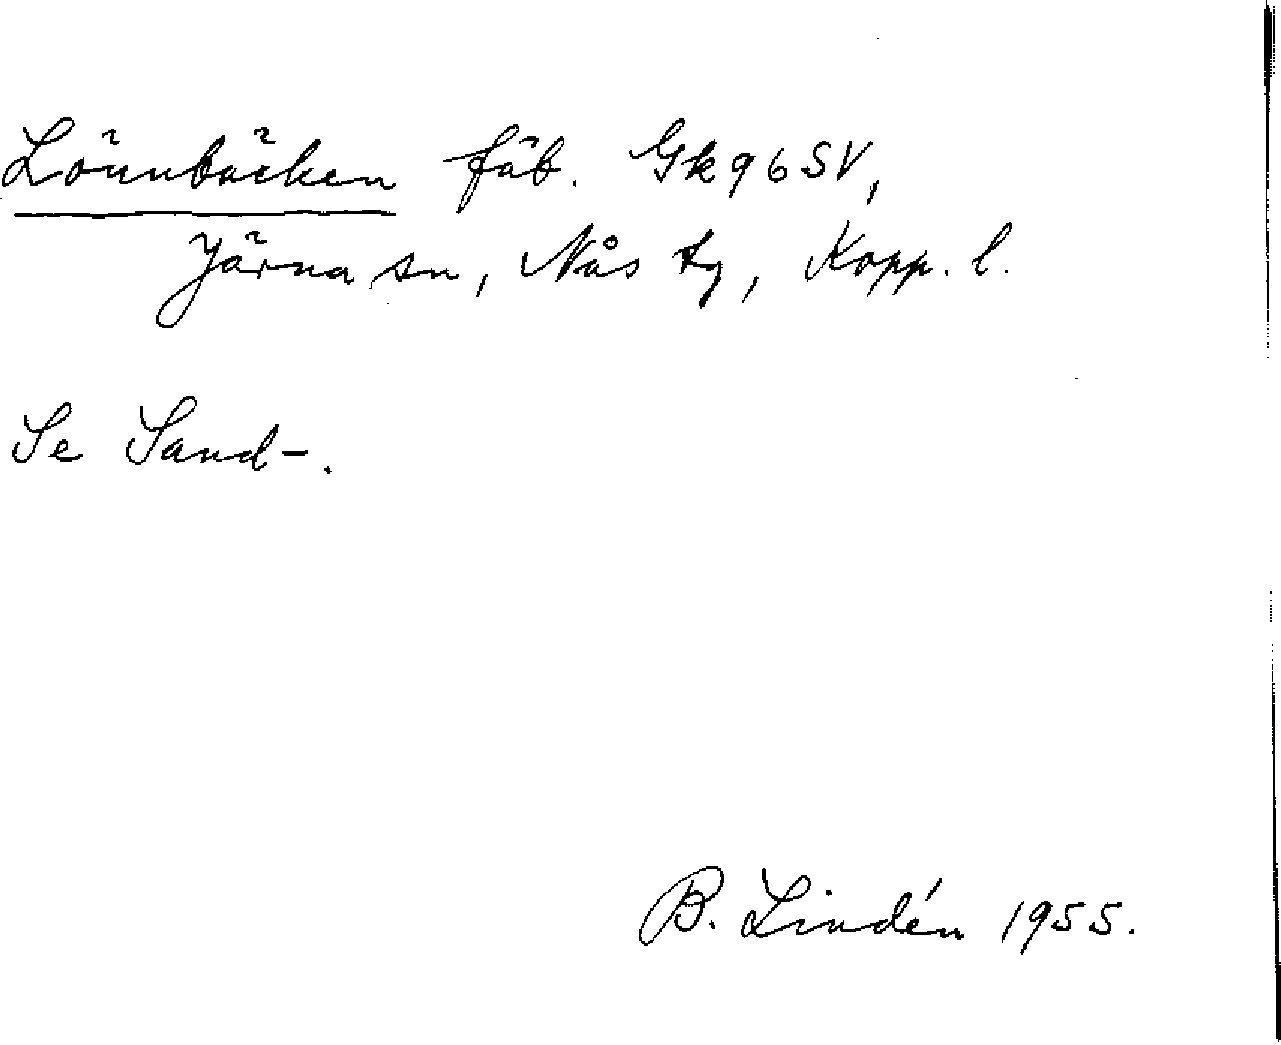 Lönnbäcken fäb. Gk96SV,
Järna sn, Nås tg, Kopp. l.
Se Sand-.
B. Lindén 1955.